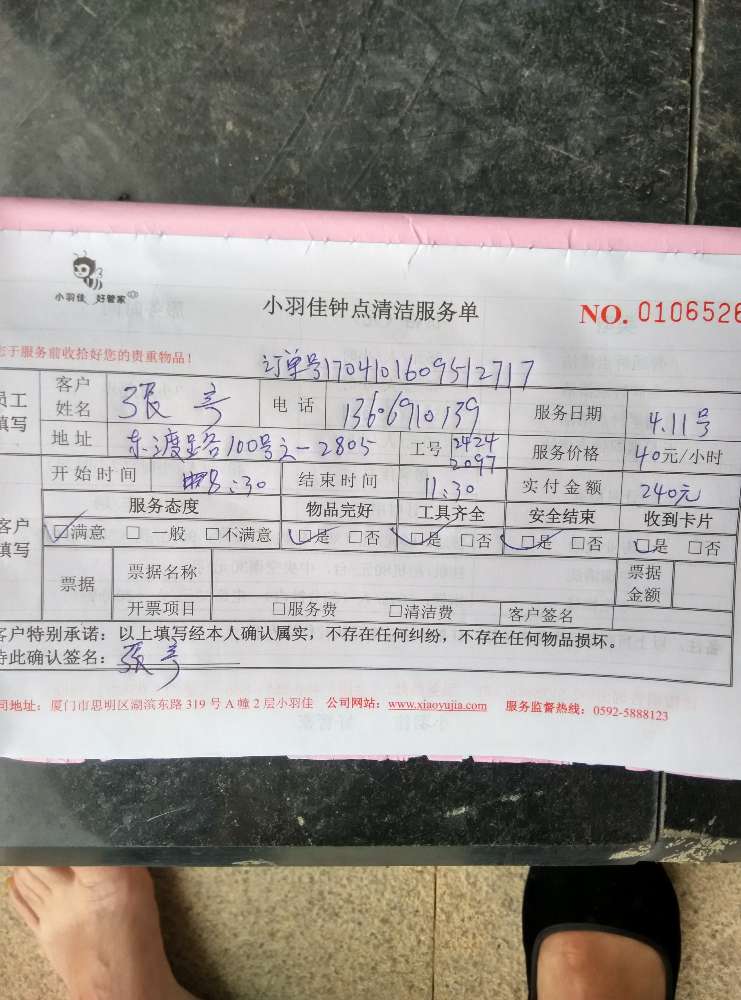 小羽佳 好管家
小羽佳钟点清洁服务单
NO. 0106526
于服务前收拾好您的贵重物品！
订单号1704101609512717
员工填写
客户姓名 張
电话 13606910139
服务日期 4.11号
地址 100号之一2805
工号 2424 2097
服务价格 40元/小时
开始时间 8:30
结束时间 11:30
实付金额 240元
客户填写
服务态度 物品完好 工具齐全 安全结束 收到卡片
☑满意 □一般 □不满意 ☑是 □否 ☑是 □否 ☑是 □否 ☑是 □否
票据
票据名称
票据金额
开票项目 □服务费 □清洁费 客户签名
客户特别承诺：以上填写经本人确认属实，不存在任何纠纷，不存在任何物品损坏。
特此确认签名：張
司地址：厦门市思明区湖滨东路 319 号 A 幢 2 层小羽佳 公司网站：www.xiaoyujia.com 服务监督热线：0592-5888123